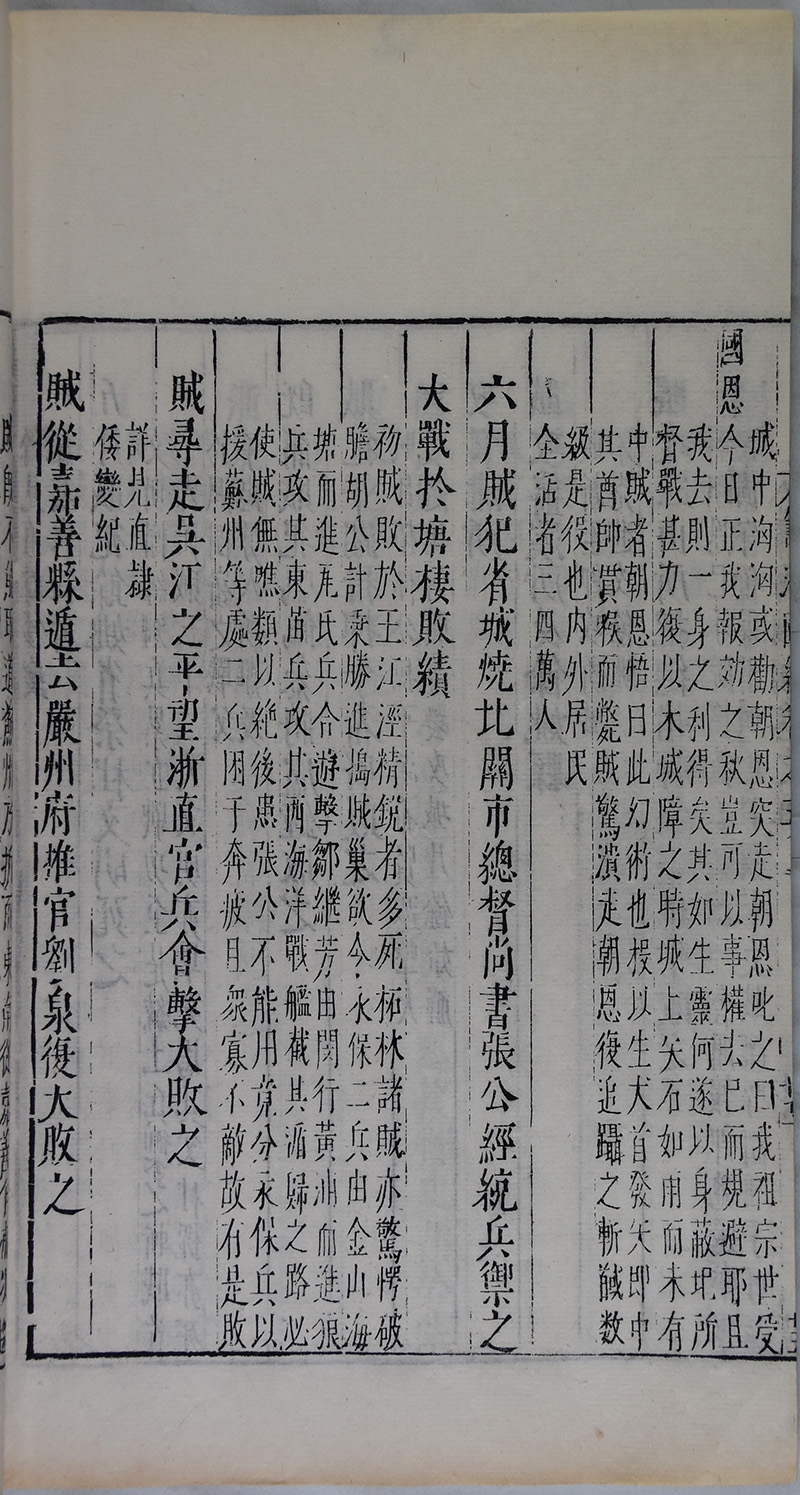 城中洶洶或勸朝恩突走朝恩叱之曰我祖宗世受
國恩今日正我報効之秋豈可以事權去已而規避耶且
我去則一身之利得矣其如生靈何遂以身蔽圯所
督戰甚力復以木城障之時城上矢石如雨而未有
中賊者朝恩悟曰此幻術也授以生犬首發矢即中
其酋帥賀猴而斃賊驚潰走朝恩復追躡之斬馘数
級是役也内外居民
全活者三四萬人
六月賊犯省城燒北關市總督尚書張公經統兵禦之
大戰於塘棲敗績
初賊敗於王江涇精銳者多死柘林諸賊亦驚愕破
膽胡公計乘勝進搗賊巢欲令永保二兵由金山海
塘而進瓦氏兵合遊擊鄒繼芳由閔行黃浦而進狼
兵攻其東苗兵攻其西海洋戰艦截其遁歸之路必
使賊無噍類以絶後患張公不能用竟分永保兵以
援蘇州等處二兵困于奔疲且衆寡不敵故有是敗
賊尋走吳江之平望浙直官兵會擊大敗之
詳見直隷
倭變紀
賊從嘉善縣遁去嚴州府推官劉泉復大敗之